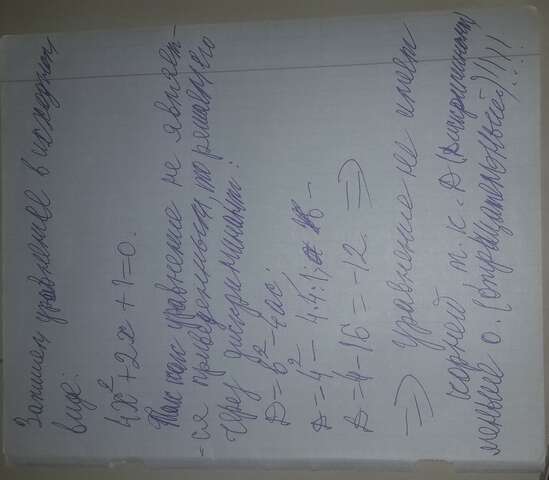 Запишем уравнение в исходном
виде:
4x²+2x+1=0.
Так как уравнение не являет-
-ся приведенным, то решаем его
через дискриминант:
D=b²-4ac.
D=4²-4·4·1; =
D=4-16=-12. =>
=> Уравнение не имеет
корней т.к. D (дискриминант)
меньше 0. (отрицательный)!!!!!